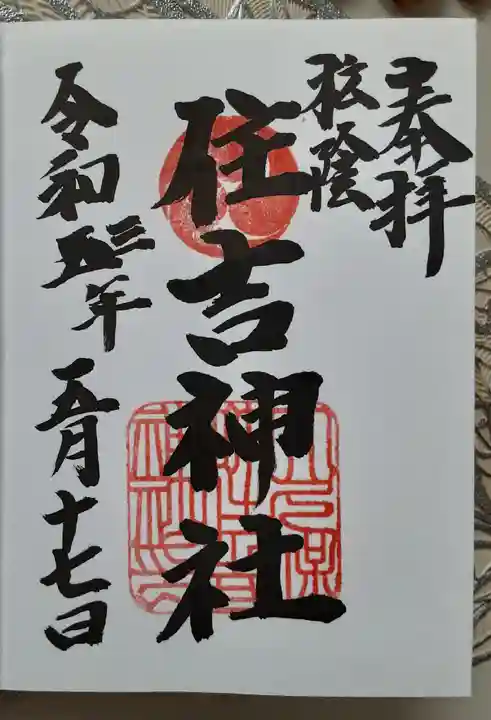 奉拝
松陰
住吉神社
令和三年五月十七日